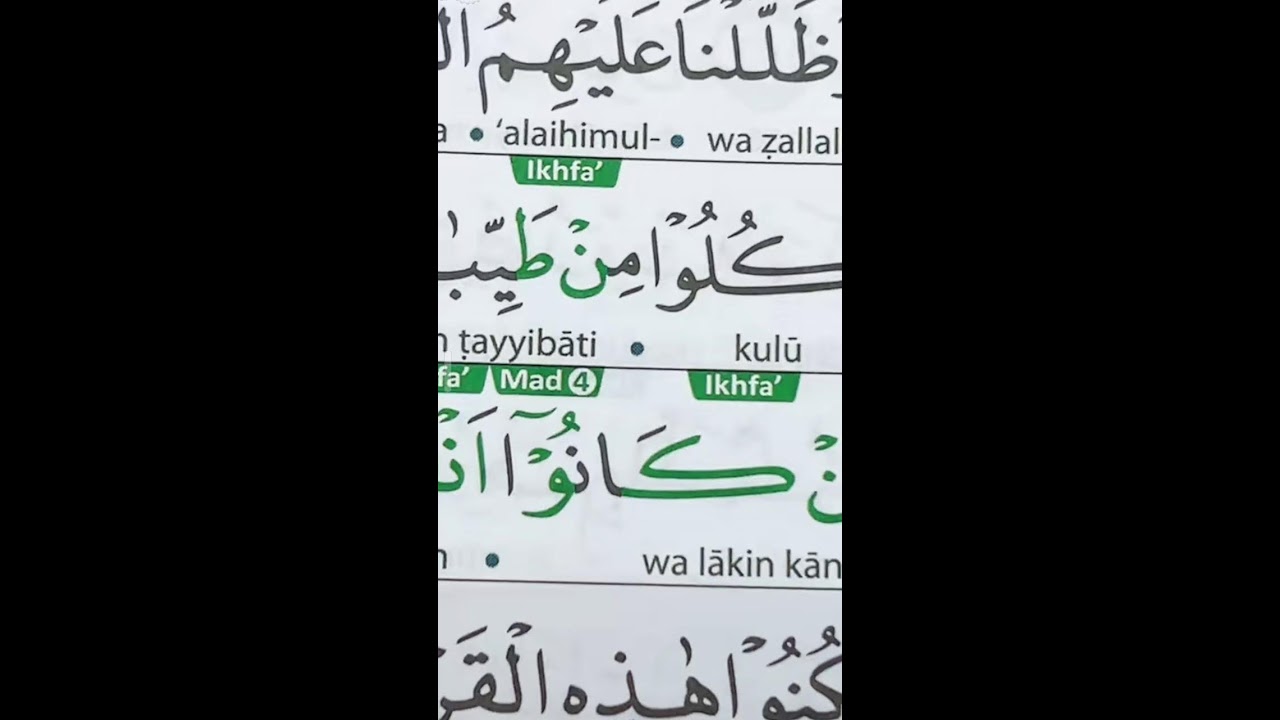 ظَلَّلْنَا عَلَيْهِمُ
‘alaihimul- • wa ẓallal
Ikhfa’
كُلُوْا مِنْ طَيِّبٰ
ṭayyibāti • kulū
fa’ Mad 4 Ikhfa’
نْ كَانُوْٓا اَنْ
• wa lākin kān
كُنُوْا هٰذِهِ الْقَرْ